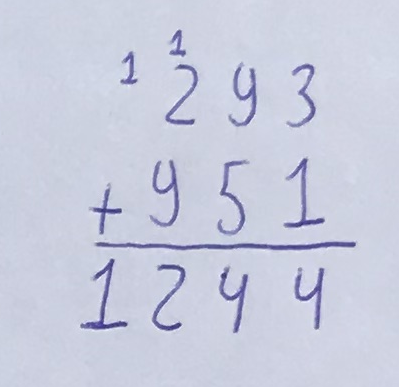 1 1
293
+ 951
1244